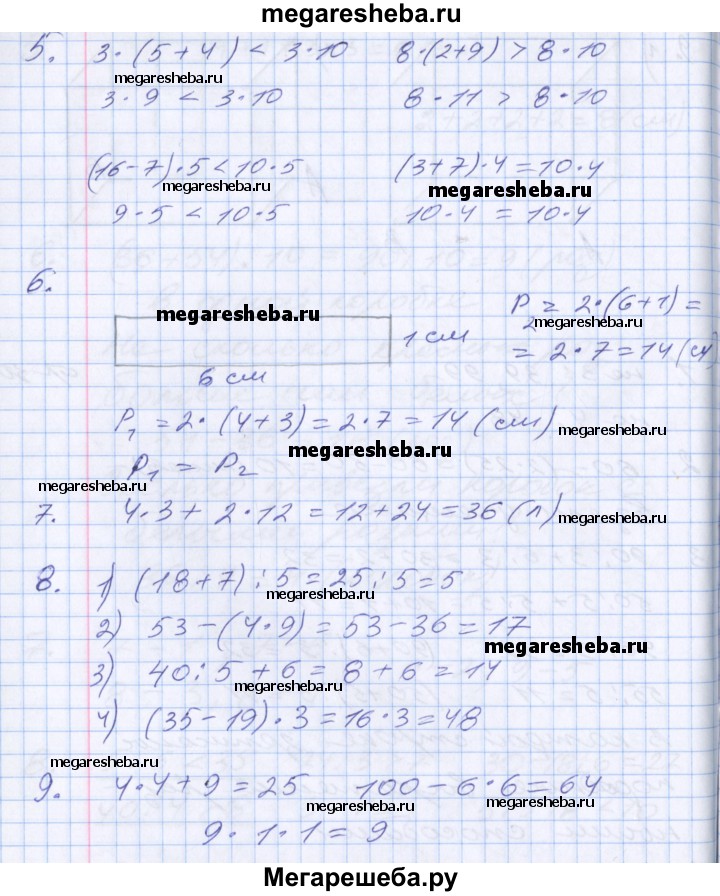 megaresheba.ru
5. 3·(5+4) < 3·10 8·(2+9) > 8·10
megaresheba.ru
3·9 < 3·10 8·11 > 8·10
(16-7)·5 < 10·5 (3+7)·4 = 10·4
megaresheba.ru megaresheba.ru
9·5 < 10·5 10·4 = 10·4
6.
megaresheba.ru 1 см P₂ = 2·(6+1) =
megaresheba.ru
= 2·7 = 14 (см)
6 см
P₁ = 2·(4+3) = 2·7 = 14 (см)
megaresheba.ru
P₁ = P₂
megaresheba.ru
7. 4·3 + 2·12 = 12+24 = 36 (л) megaresheba.ru
8. 1) (18+7):5 = 25:5 = 5
megaresheba.ru
2) 53-(4·9) = 53-36 = 17
megaresheba.ru
3) 40:5+6 = 8+6 = 14
megaresheba.ru
4) (35-19)·3 = 16·3 = 48
megaresheba.ru
9. 4·4+9 = 25 100-6·6 = 64
megaresheba.ru megaresheba.ru
9·1·1 = 9
Мегарешеба.ру